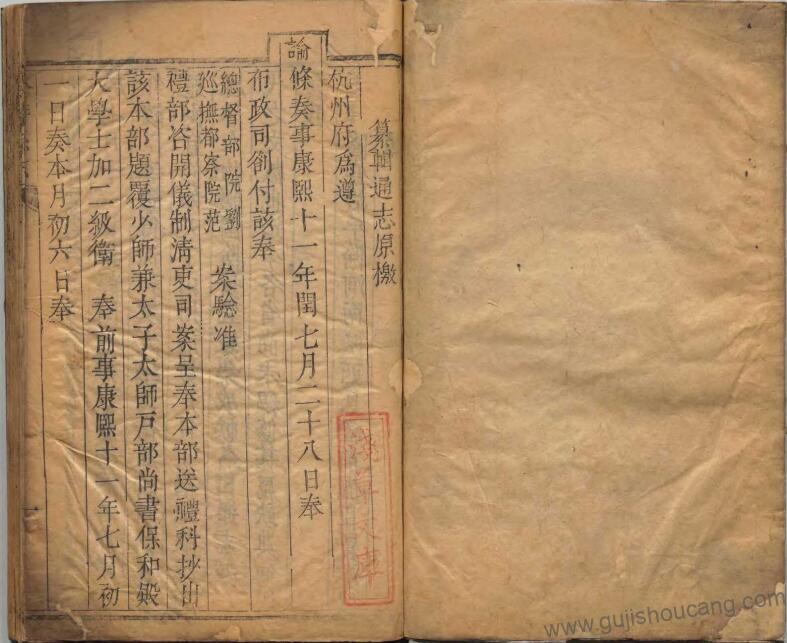 纂輯通志原檄
杭州府爲遵
諭條奏事康熙十一年閏七月二十八日奉
布政司劄付該奉
總督部院劉
巡撫都察院范
案驗准
禮部咨開儀制清吏司案呈奉本部送禮科抄出
該本部題覆少師兼太子太師戶部尚書保和殿
大學士加二級衞 奉前事康熙十一年七月初
一日奏本月初六日奉
一
淺草文庫
www.gujishoucang.com